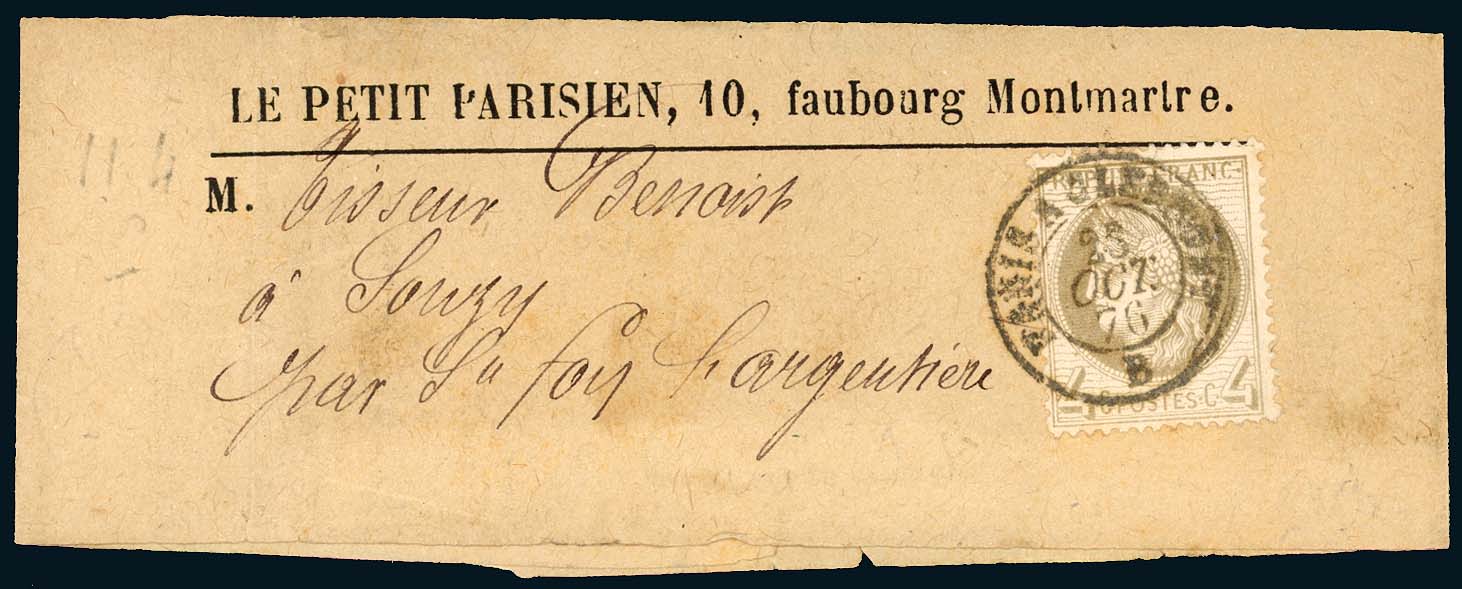 LE PETIT PARISIEN, 10, faubourg Montmartre.
M. Tisseur Benoist
à Souzy
par Ste foy l'argentière
REPUB. FRANC.
4 C. POSTES. C. 4
PARIS A CLERMONT
25
OCT.
76
B
11 4